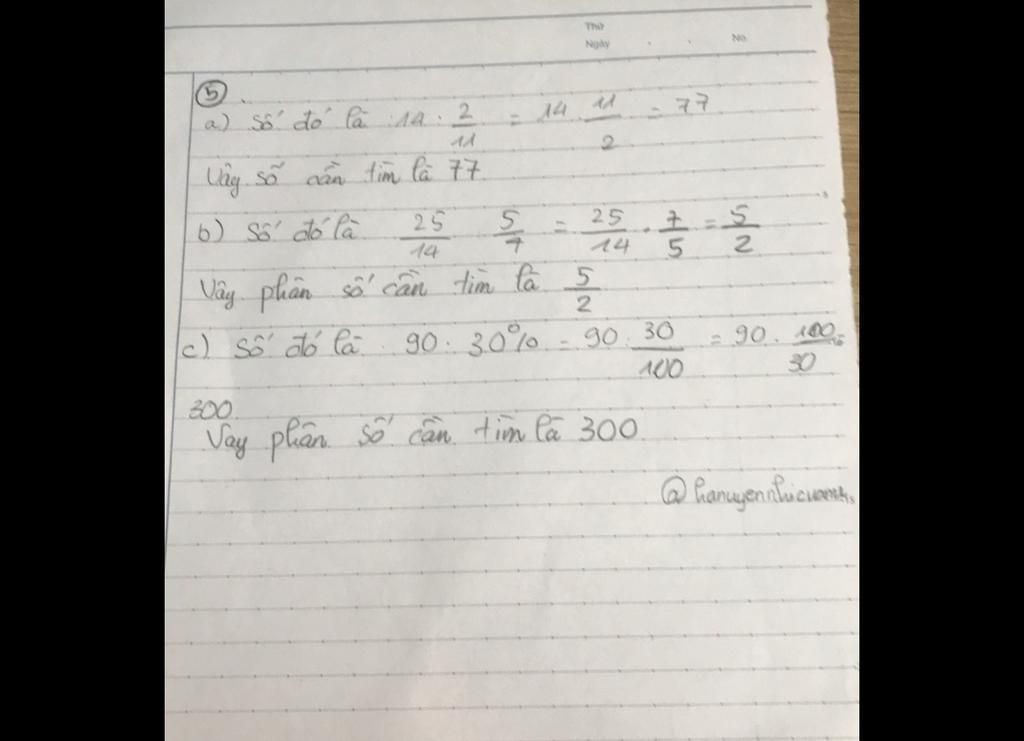 Thứ
Ngày . . No.
5
a) Số đó là 14 . 2/11 = 14 . 11/2 = 77
Vậy số cần tìm là 77
b) Số đó là 25/14 5/7 = 25/14 . 7/5 = 5/2
Vây phân số cần tìm là 5/2
c) Số đó là 90 . 30% = 90 . 30/100 = 90 . 100/30 =
300
Vay phân số cần tìm là 300